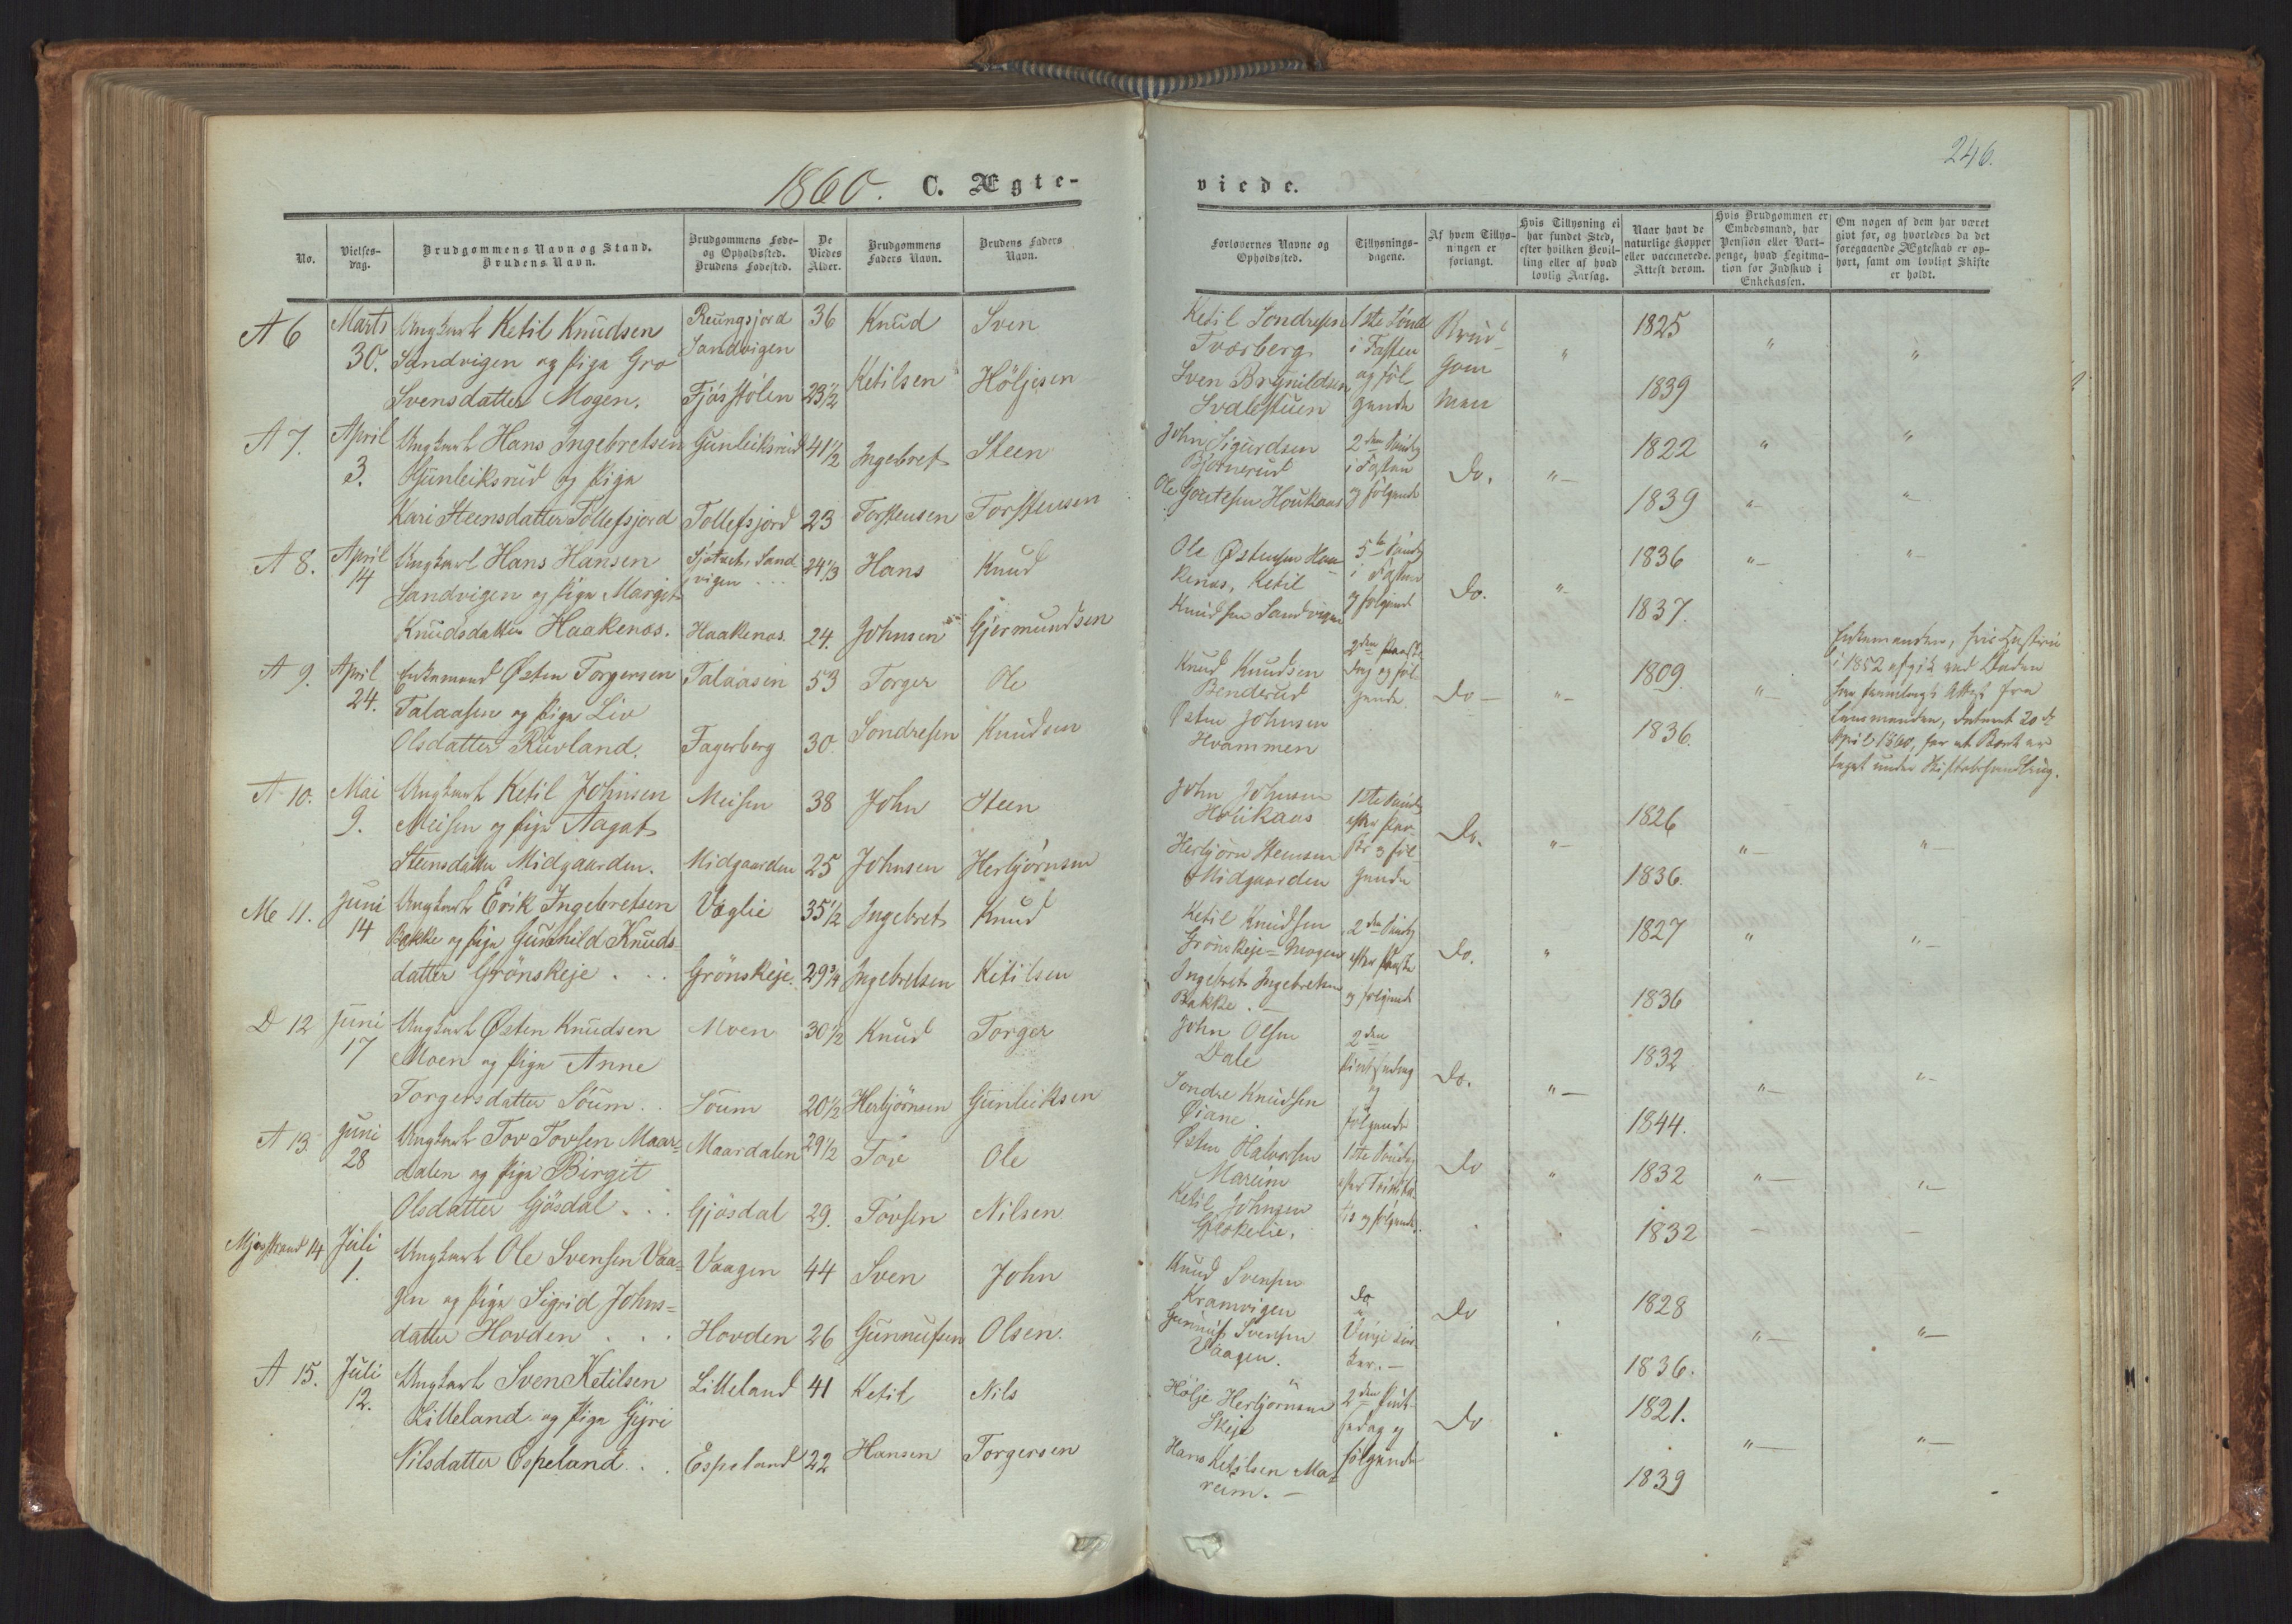 246.
1860. C. Ægte-
viede.
No.
Vielses-
dag.
Brudgommens Navn og Stand.
Brudens Navn.
Brudgommens Føde-
og Opholdssted.
Brudens Fødested.
De
Viedes
Alder.
Brudgommens
Faders Navn.
Brudens Faders
Navn.
Forlovernes Navne og
Opholdssted.
Tillysnings-
dagene.
Af hvem Tillys-
ningen er
forlangt.
Hvis Tillysning ei
har fundet Sted,
efter hvilken Bevil-
ling eller af hvad
lovlig Aarsag.
Naar havt de
naturlige Kopper
eller vaccinerede.
Attest derom.
Hvis Brudgommen er
Embedsmand, har
Pension eller Vart-
penge, hvad Legitima-
tion for Indskud i
Enkekassen.
Om nogen af dem har været
gift før, og hvorledes da det
foregaaende Ægteskab er op-
hørt, samt om lovligt Skifte
er holdt.
A 6
Marts
30.
Ungkarl Ketil Knudsen
Sandvigen og Pige Gro
Svensdatter Mogen.
Reungsjord
Sandvigen
Fjösstölen
36
23½
Knud
Ketilsen
Sven
Höljesen
Ketil Sondresen
Tværberg
Sven Brynildsen
1ste Sönd
i Fasten
og föl
gende
Brud
Gom
men
"
1825
1839
"
"
A 7.
April
3.
Ungkarl Hans Ingebretsen
Gunleiksrud og Pige
Kari Steensdatter Tollefsjord
Gunleiksrud
Tollefsjord
41½
23
Ingebret
Torstensen
Steen
Torstensen
John Sigurdsen
Bjørnerud
2den Söndag
i Fasten
og fölgende
Do.
"
1822
1839
"
"
A 8.
April
14
Ungkarl Hans Hansen
Sandvigen og Pige Margit
Knudsdatter Haakenæs.
Sand
vigen
Haakenæs.
24⅓
24.
Hans
Johnsen
Knud
Gjermundsen
Ole Østensen Haa
kenæs, Ketil
Knudsen Sandvigen
5te Söndag
i Fasten
og fölgende
Do.
"
1836
1837.
"
"
A 9.
April
24.
Enkemand Østen Torgersen
Talaasen og Pige Liv
Olsdatter Ruvland.
Talaasen
Fagerberg
53
30.
Torger
Sondresen
Ole
Knudsen
Knud Knudsen
Benderud
Østen Johnsen
Hvammen
2den Paaske-
dag og föl-
gende.
Do
"
1809.
1836.
"
Enkemanden, hvis Hustru
i 1852 afgik ved Döden
har fremlagt Attest fra
Lensmanden, dateret 20de
April 1860, for at Boet er
taget under Skiftebehandling.
A 10.
Mai
9.
Ungkarl Ketil Johnsen
Meisen og Pige Aagat
Steensdatter Midgaarden.
Meisen
Midgaarden
38
25
John
Johnsen
Steen
Herbjörnsen
John Johnsen
Houkaas
Herbjörn Steensen
Midgaarden
1ste Söndag
efter Paa-
ske og föl-
gende
Do.
"
1826
1836.
"
"
Me 11.
Juni
14
Ungkarl Erik Ingebretsen
Bakke og Pige Gunhild Knuds
datter Grönskeje
Væglie
Grönskeje.
35½
29¾
Ingebret
Ingebretsen
Knud
Ketilsen
Ketil Knudsen
Grönskeje-Mogen
Ingebret Ingebretsen
Bakke.
2den Söndag
efter Paaske
og fölgende
Do.
"
1827
1836
"
"
D 12
Juni
17
Ungkarl Østen Knudsen
Moen og Pige Anne
Torgersdatter Soum
Moen
Soum
30½
20½
Knud
Herbjörnsen
Torger
Gunleiksen
John Olsen
Dale
Sondre Knudsen
Øiane
2den
Pintsedag
og
fölgende
Do.
"
1832
1844.
"
"
A 13.
Juni
28
Ungkarl Tov Tovsen Maar-
dalen og Pige Birgit
Olsdatter Gjösdal
Maardalen
Gjösdal
29½
29.
Tov
Tovsen
Ole
Nilsen
Østen Halvorsen
Mareim
Ketil Johnsen
1ste Söndag
efter Trinita
tis og fölgende.
Do
"
1832
1832
"
"
Mjösstrand 14
Juli
1.
Ungkarl Ole Svensen Vaa-
gen og Pige Sigrid Johns-
datter Hovden
Vaagen
Hovden
44
26
Sven
Gunnufsen
John
Olsen.
Knud Svensen
Kramvigen
Gunnuf Svensen
Vaagen.
Do
Do
1828
1836.
"
"
A 15.
Juli
12.
Ungkarl Sven Ketilsen
Litteland og Pige Gyri
Nilsdatter Espeland.
Litteland
Espeland
41
22
Ketil
Hansen
Nils
Torgersen
Hölje Herbjörnsen
Skeje
Hans Ketilsen Ma-
reim.
2den Pint-
sedag og
fölgende
Do
1821.
1839
"
"